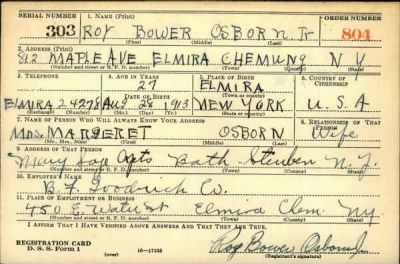 SERIAL NUMBER 1. NAME (Print) ORDER NUMBER
303 ROY BOWER OSBORN. Jr 804
(First) (Middle) (Last)
2. ADDRESS (Print)
812 MAPLE AVE ELMIRA CHEMUNG N Y
(Number and street or R. F. D. number) (Town) (County) (State)
3. TELEPHONE 4. AGE IN YEARS 5. PLACE OF BIRTH 6. COUNTRY OF CITIZENSHIP
27 ELMIRA
DATE OF BIRTH (Town or county)
ELMIRA 24278 Aug 28 1913 NEW YORK U.S.A
(Exchange) (Number) (Mo.) (Day) (Yr.) (State or country)
7. NAME OF PERSON WHO WILL ALWAYS KNOW YOUR ADDRESS 8. RELATIONSHIP OF THAT PERSON
Mrs. MARGERET OSBORN Wife
(Mr., Mrs., Miss) (First) (Middle) (Last)
9. ADDRESS OF THAT PERSON
Mary Apts Bath Steuben N.Y.
(Number and street or R. F. D. number) (Town) (County) (State)
10. EMPLOYER'S NAME
B. F. Goodrich Co.
11. PLACE OF EMPLOYMENT OR BUSINESS
450 E. Water St Elmira Chem. NY
(Number and street or R. F. D. number) (Town) (County) (State)
I AFFIRM THAT I HAVE VERIFIED ABOVE ANSWERS AND THAT THEY ARE TRUE.
REGISTRATION CARD
D. S. S. Form 1 (over) 16—17105 Roy Bower Osborn Jr
(Registrant's signature)